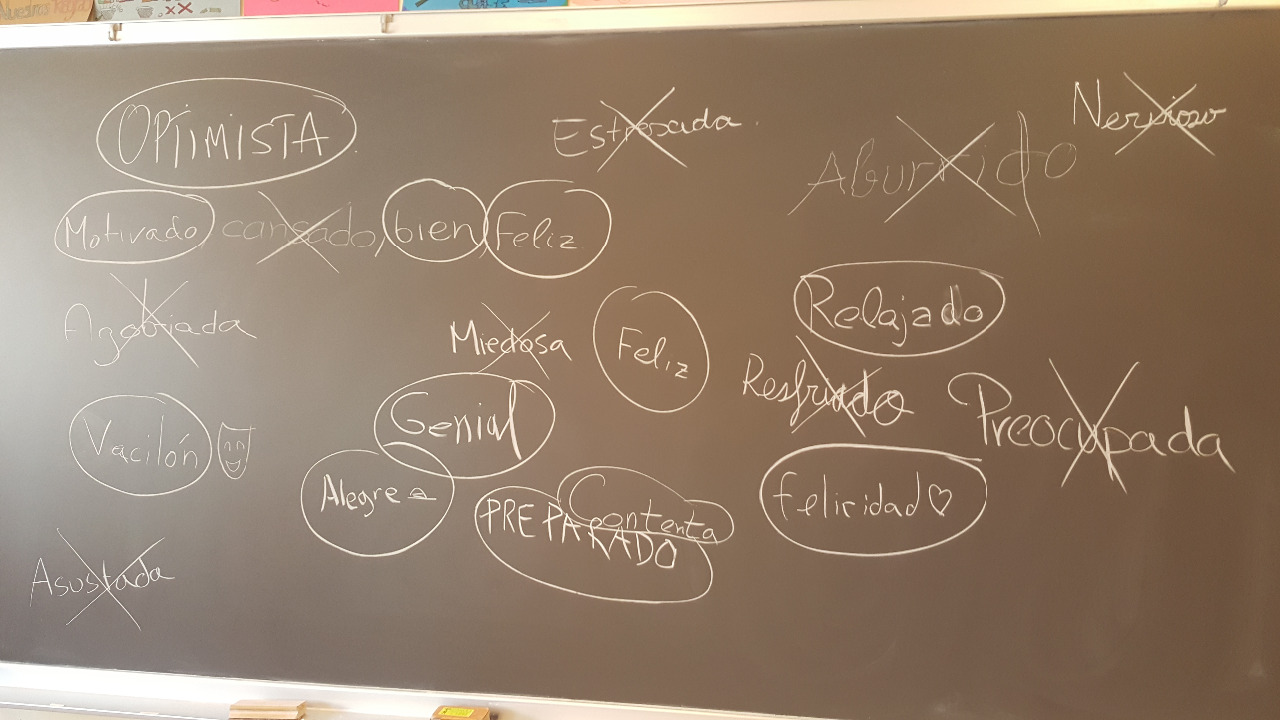 OPTIMISTA
Estresada
Aburrido
Nervioso
Motivado cansado, bien Feliz
Agobiada
Miedosa
Feliz
Relajado
Resfriado
Preocupada
Vacilón
Genial
Alegre
Contenta
PREPARADO
felicidad
Asustada